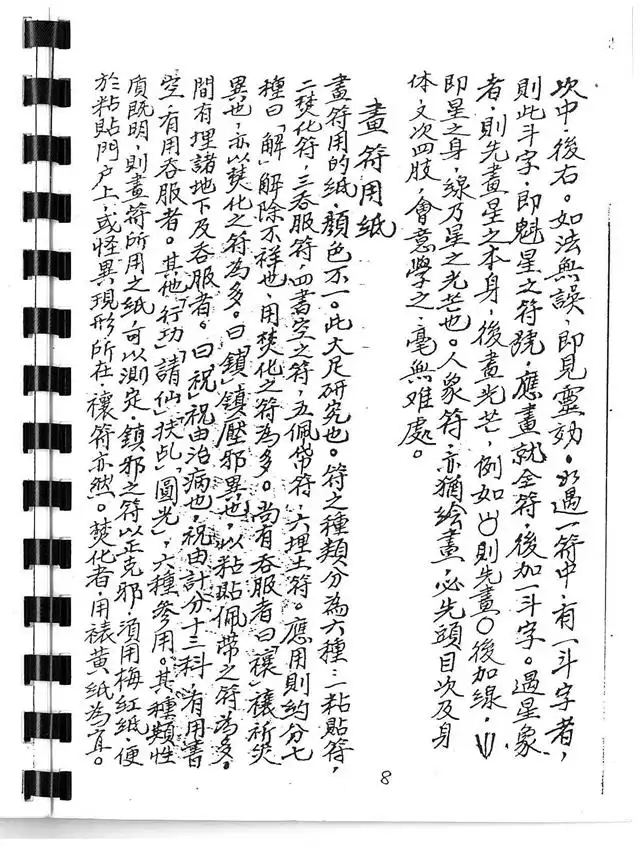 次中、後右。如法無誤，即見靈効。如遇一符中，有一斗字者，
則此斗字，即魁星之符號，應畫就全符，後加一斗字。遇星象
者，則先畫星之本身，後畫光芒，例如 則先畫〇後加線。
即星之身，線乃星之光芒也。人象符，亦猶繪畫，必先頭目次及身
体，又次四肢，會意學之，毫無难處。
畫符用紙
畫符用的紙，顏色不一。此大足研究也。符之種類分為六種：一粘貼符，
二焚化符，三吞服符，四書空之符，五佩帶符，六埋土符。應用則約分七
種曰「解」解除不祥也，用焚化之符為多。尚有吞服者曰「禳」禳祈災
異也，亦以焚化之符為多。曰「鎮」鎮壓邪異也，以粘貼佩帶之符為多。
間有埋諸地下及吞服者。曰「祝」祝由治病也，祝由計分十三科，有用書
空，有用吞服者。其他「行功」「請仙」「扶乩」「圓光」，六種參用。其種類性
质既明，則畫符所用之紙，可以測定，鎮邪之符以正克邪，須用梅紅紙，便
於粘貼門户上，或怪異現形所在，禳符亦然。焚化者，用裱黄紙為宜。
8